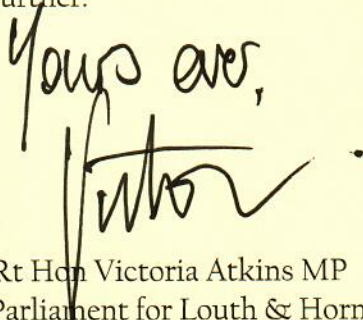 further.
Yours ever,
Victoria
Rt Hon Victoria Atkins MP
Parliament for Louth & Horn